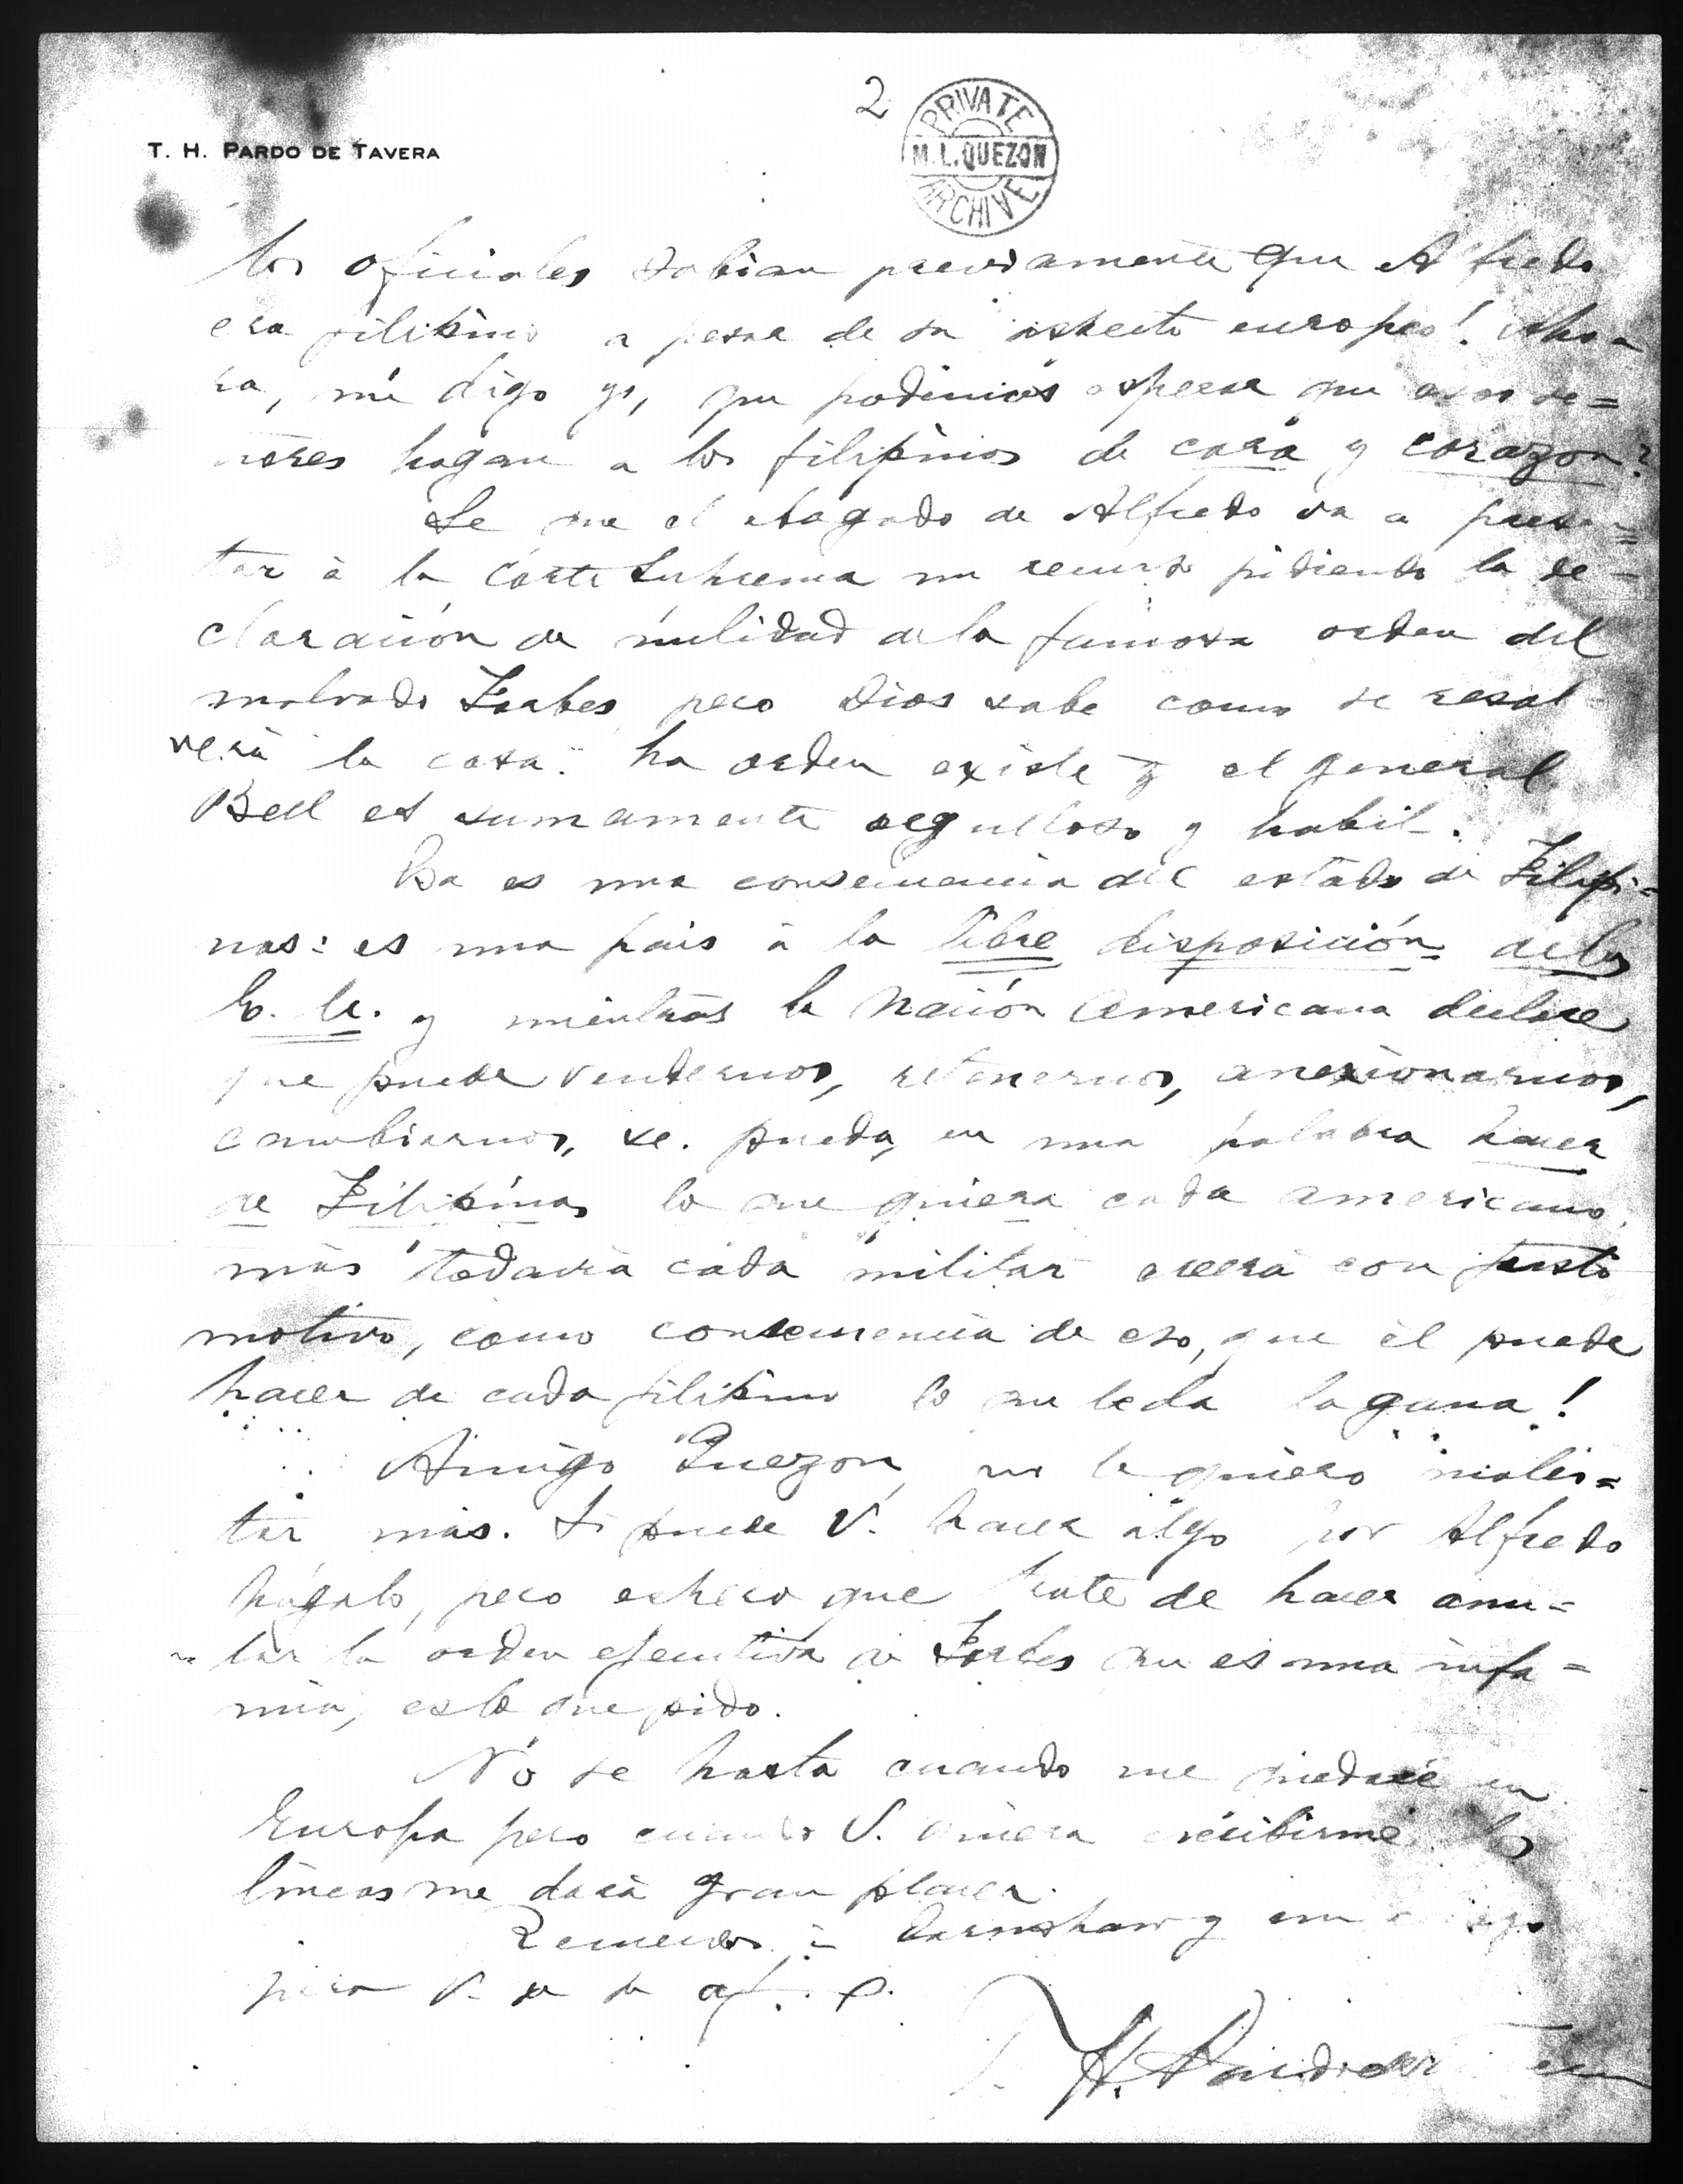 2
PRIVATE
M.L.QUEZON
ARCHIVE
T. H. PARDO DE TAVERA
los oficiales sabian previamente que Alfredo
era filipino a pesar de su aspecto europeo! Aho-
ra, me digo yo, que podemos esperar que esos se=
ñores hagan a los filipinos de cara y corazon?
Se que el abogado de Alfredo va a presen=
tar à la Corte Suprema un recurso pidiendo la de-
claración de nulidad de la famosa orden del
malvado Forbes pero Dios sabe como se resol
verá la cosa. La orden existe y el general
Bell es sumamente orgulloso y habil.
Esa es una consecuencia del estado de Filipi=
nas: es una pais à la libre disposición de los
E. U. y mientras la Nación Americana declare
que puede vendernos, retenernos, anexionarnos,
cambiarnos, &c. pueda, en una palabra hacer
de Filipinas lo que quiera cada americano
más todavia cada militar creerá con justo
motivo, como consecuencia de eso, que él puede
hacer de cada filipino lo que le da la gana!
Amigo Quezon, no le quiero moles=
tar más. Si puede V. hacer algo por Alfredo
hágalo, pero espero que trate de hacer anu=
lar la orden ejecutiva de Forbes que es una infa=
mia, es lo que pido.
No se hasta cuando me quedaré en
Europa pero cuando V. quiera escribirme
lineas me dará gran placer.
Recuerdos à Earnshaw y un
para V. de su af.
T. H. Pardo de Tavera